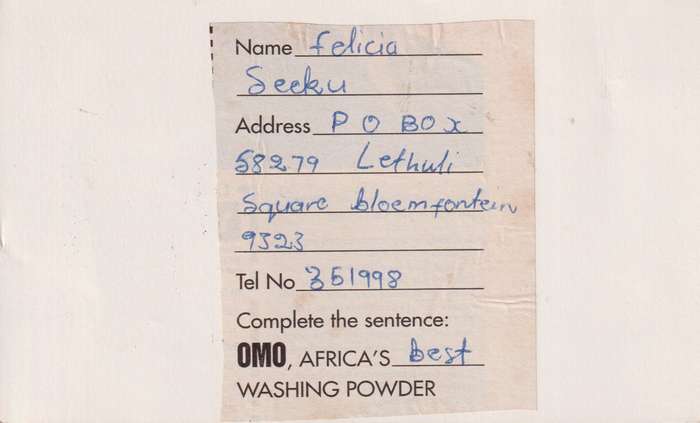 Name Felicia
Seeku
Address P O BOX
58279 Lethuli
Square bloemfontein
9323
Tel No 351998
Complete the sentence:
OMO, AFRICA'S best
WASHING POWDER